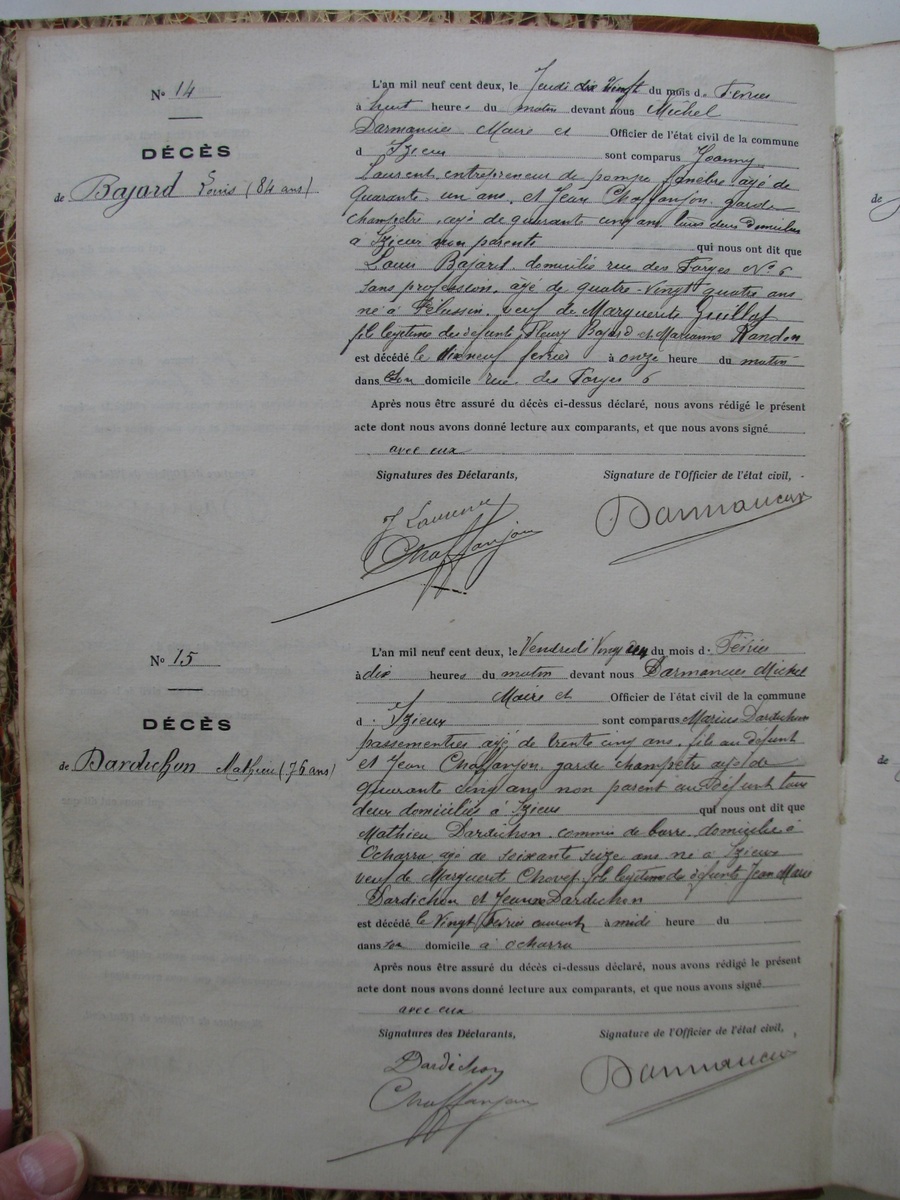 N° 14
DÉCÈS
de Bajard Louis (84 ans)
L'an mil neuf cent deux, le Jeudi Vingt du mois d. Fevrier
à huit heures du matin devant nous Michel
Darmancier Maire et Officier de l'état civil de la commune
d Izieux sont comparus Joanny
Laurent, entrepreneur de pompe funèbre âgé de
quarante un ans et Jean Chaffanjon garde
champêtre, âgé de quarante cinq ans tous deux domiciliés
à Izieux non parents qui nous ont dit que
Louis Bajard domicilié rue des Forges N° 6
sans profession, âgé de quatre-vingt quatre ans
né à Pélussin, veuf de Marguerite Guillot
fils légitime des défunts Fleury Bajard et Marianne Randon
est décédé le dix neuf fevrier à onze heure du matin
dans son domicile rue des Forges 6
Après nous être assuré du décès ci-dessus déclaré, nous avons rédigé le présent
acte dont nous avons donné lecture aux comparants, et que nous avons signé
avec eux
Signatures des Déclarants, Signature de l'Officier de l'état civil,
J Laurent Darmancier
Chaffanjon
N° 15
DÉCÈS
de Dardichon Mathieu (76 ans)
L'an mil neuf cent deux, le Vendredi Vingt un du mois d. Février
à dix heures du matin devant nous Darmancier Michel
Maire et Officier de l'état civil de la commune
d. Izieux sont comparus Marius Dardichon
passementier âgé de trente cinq ans, fils au défunt
et Jean Chaffanjon garde champêtre âgé de
quarante cinq ans non parent au défunt tous
deux domiciliés à Izieux qui nous ont dit que
Mathieu Dardichon commis de barre domicilié à
Ocharra agé de seixante seize ans né à Izieux
veuf de Marguerite Chovet fils légitime des défunts Jean Marie
Dardichon et Jeanne Dardichon
est décédé le Vingt Fevrier courant, à midi heure du
dans son domicile à Ocharra
Après nous être assuré du décès ci-dessus déclaré, nous avons rédigé le présent
acte dont nous avons donné lecture aux comparants, et que nous avons signé
avec eux
Signatures des Déclarants, Signature de l'Officier de l'état civil,
Dardichon Darmancier
Chaffanjon
de
de